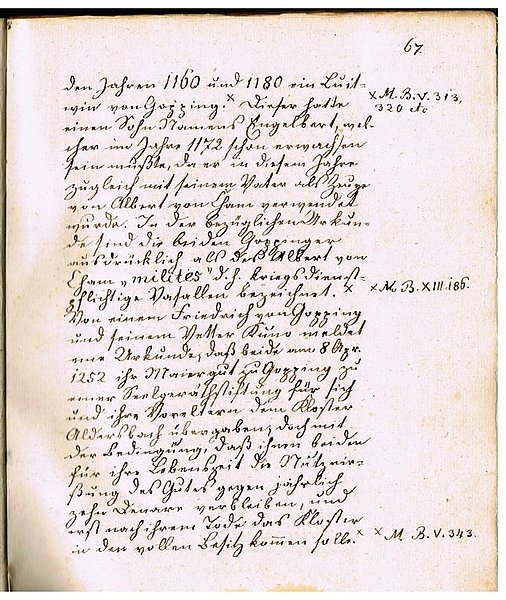 67.
den Jahren 1160 und 1180 ein Luit-
win von Gopping.× Dieser hatte
×M. B. V. 313,
320 etc
einen Sohn Namens Engelbert, wel-
cher im Jahre 1172 schon erwachsen
sein mußte, da er in diesem Jahre
zugleich mit seinem Vater als Zeuge
von Albert von Cham verwendet
wurde. In der bezüglichen Urkun-
de sind die beiden Goppinger
ausdrücklich als des Albert von
Cham „milites" d. h. kriegsdienst-
pflichtige Vasallen bezeichnet. ×
× M. B. XIII. 186.
Von einem Friedrich von Gopping
und seinem Vetter Kuno meldet
eine Urkunde, daß beide am 8 Apr.
1252 ihr Maiergut zu Gopping zu
einer Seelgeräthstiftung für sich
und ihre Voreltern dem Kloster
Aldersbach übergaben, doch mit
der Bedingung, daß ihnen beiden
für ihre Lebenszeit die Nutznie-
ßung des Gutes gegen jährlich
zehn Denare verbleiben, und
erst nach ihrem Tode das Kloster
in den vollen Besitz kommen solle.×
× M. B. V. 343.